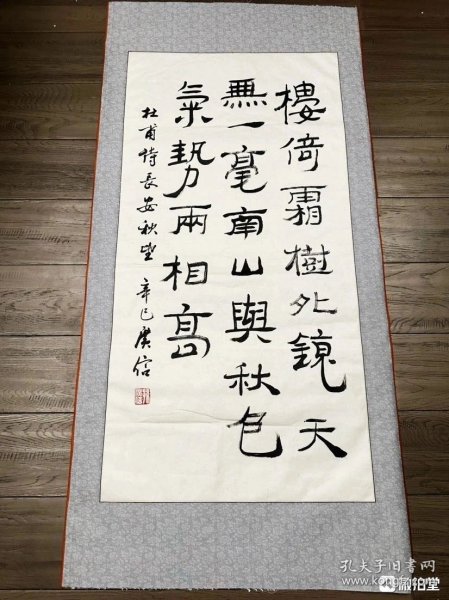 樓倚霜樹外鏡天
無一毫南山與秋色
氣勢兩相高
杜甫詩長安秋望 辛巳 廣信
孔夫子旧书网
微拍堂